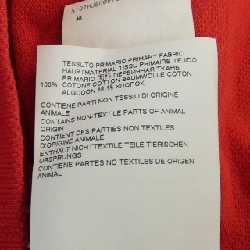 TESSUTO PRIMARIO PRIMARY FABRIC
HAUPTMATERIAL TISSU PRIMAIRE TEJIDO
PRIMARIO
100% COTONE COTTON BAUMWOLLE COTON
ALGODON
CONTIENE PARTI NON TESSILI DI ORIGINE
ANIMALE
CONTAINS NON-TEXTILE PARTS OF ANIMAL
ORIGIN
CONTIENT DES PARTIES NON TEXTILES
D'ORIGINE ANIMALE
ENTHÄLT NICHTTEXTILE TEILE TIERISCHEN
URSPRUNGS
CONTIENE PARTES NO TEXTILES DE ORIGEN
ANIMAL